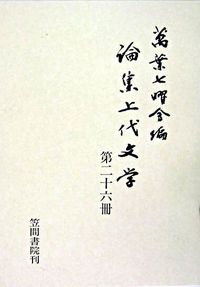 萬葉七曜会編
論集上代文学
第二十六冊
笠間書院刊